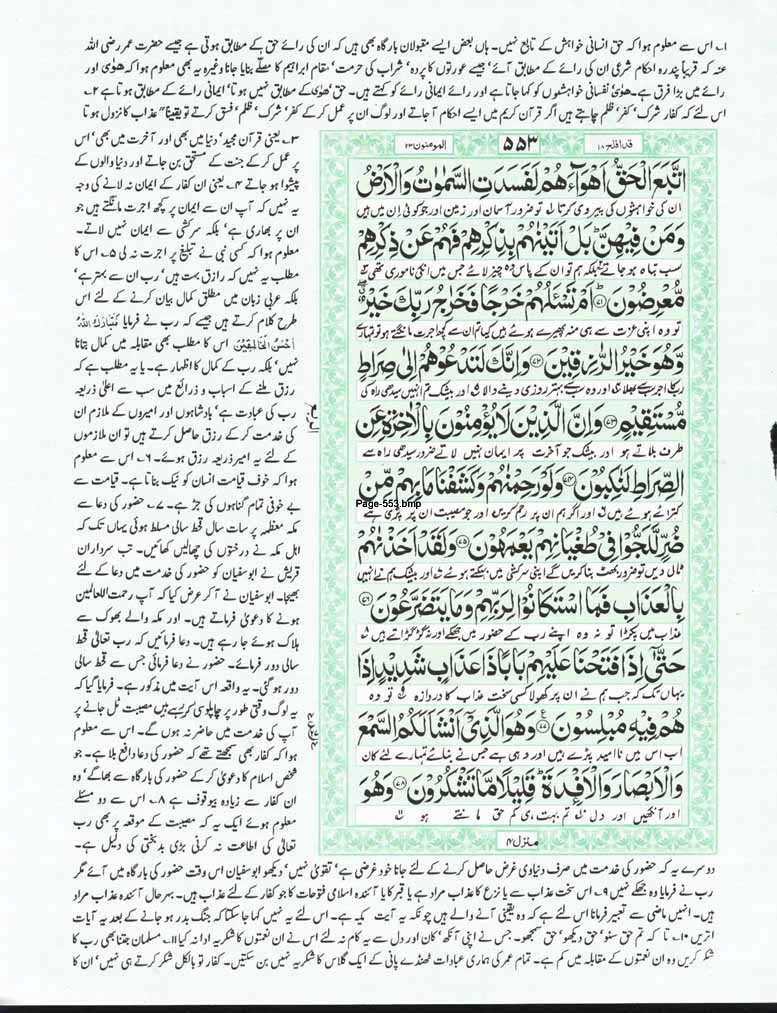 ۱۔ اس سے معلوم ہوا کہ حق انسانی خواہش کے تابع نہیں۔ ہاں بعض ایسے مقبولان بارگاہ بھی ہیں کہ ان کی رائے حق کے مطابق ہوتی ہے جیسے حضرت عمر رضی اللہ
عنہ کہ قریباً پندرہ احکام شرعی ان کی رائے کے مطابق آئے، جیسے عورتوں کا پردہ، شراب کی حرمت، مقام ابراہیم کا مصلّے بنایا جانا وغیرہ یہ بھی معلوم ہوا کہ ھوٰی اور
رائے میں بڑا فرق ہے۔ ھوٰی نفسانی خواہشوں کو کہا جاتا ہے اور رائے ایمانی رائے کو کہتے ہیں۔ حق ھوٰی کے مطابق نہیں ہوتا، ایمانی رائے کے مطابق ہوتا ہے ۲۔
اس لئے کہ کفار شرک، کفر، ظلم چاہتے ہیں اگر قرآن کریم میں ایسے احکام آ جاتے اور لوگ ان پر عمل کر کے کفر، شرک، ظلم، فسق کرتے تو یقیناً عذاب کا نزول ہوتا
قد افلح ۱۸
۵۵۳
المومنون ۲۳
اتَّبَعَ الْحَقُّ اَهْوَآءَهُمْ لَفَسَدَتِ السَّمٰوٰتُ وَالْاَرْضُ
ان کی خواہشوں کی پیروی کرتا تو ضرور آسمان اور زمین اور جو کوئی ان میں ہیں
وَمَنْ فِيْهِنَّ ؕ بَلْ اَتَيْنٰهُمْ بِذِكْرِهِمْ فَهُمْ عَنْ ذِكْرِهِمْ
سب تباہ ہو جاتے بلکہ ہم تو ان کے پاس وہ چیز لائے جس میں انکی ناموری تھی
مُّعْرِضُوْنَ ﴿۷۱﴾ اَمْ تَسْـَٔلُهُمْ خَرْجًا فَخَرَاجُ رَبِّكَ خَيْرٌ ۖ
تو وہ اپنی عزت سے ہی منہ پھیرے ہوئے ہیں کیا تم ان سے کچھ اجرت مانگتے ہو تو تمہارے
وَّهُوَ خَيْرُ الرّٰزِقِيْنَ ﴿۷۲﴾ وَاِنَّكَ لَتَدْعُوْهُمْ اِلٰى صِرَاطٍ
رب کا اجر سب سے بھلا اور وہ سب سے بہتر روزی دینے والا اور بیشک تم انہیں سیدھی راہ کی
مُّسْتَقِيْمٍ ﴿۷۳﴾ وَاِنَّ الَّذِيْنَ لَا يُؤْمِنُوْنَ بِالْاٰخِرَةِ عَنِ
طرف بلاتے ہو اور بیشک جو آخرت پر ایمان نہیں لاتے ضرور سیدھی راہ سے
الصِّرَاطِ لَنٰكِبُوْنَ ﴿۷۴﴾ وَلَوْ رَحِمْنٰهُمْ وَكَشَفْنَا مَا بِهِمْ مِّنْ
Page-553.bmp
کترائے ہوئے ہیں اور اگر ہم ان پر رحم کریں اور جو مصیبت ان پر پڑی ہے
ضُرٍّ لَّلَجُّوْا فِيْ طُغْيَانِهِمْ يَعْمَهُوْنَ ﴿۷۵﴾ وَلَقَدْ اَخَذْنٰهُمْ
ٹال دیں تو ضرور بھٹ پنا کریں گے اپنی سرکشی میں بہکتے ہوئے اور بیشک ہم نے انہیں
بِالْعَذَابِ فَمَا اسْتَكَانُوْا لِرَبِّهِمْ وَمَا يَتَضَرَّعُوْنَ ﴿۷۶﴾
عذاب میں پکڑا تو نہ وہ اپنے رب کے حضور میں جھکے اور نہ گڑگڑاتے ہیں
حَتّٰۤى اِذَا فَتَحْنَا عَلَيْهِمْ بَابًا ذَا عَذَابٍ شَدِيْدٍ اِذَا
یہاں تک کہ جب ہم نے ان پر کھولا کسی سخت عذاب کا دروازہ تو وہ
هُمْ فِيْهِ مُبْلِسُوْنَ ﴿۷۷﴾ وَهُوَ الَّذِيْۤ اَنْشَاَ لَكُمُ السَّمْعَ
اب اس میں نا امید پڑے ہیں اور وہی ہے جس نے بنائے تمہارے لئے کان
وَالْاَبْصَارَ وَالْاَفْـِٕدَةَ ؕ قَلِيْلًا مَّا تَشْكُرُوْنَ ﴿۷۸﴾ وَهُوَ
اور آنکھیں اور دل تم بہت ہی کم حق مانتے ہو
منزل ۴
۳۔ یعنی قرآن مجید، دنیا میں بھی اور آخرت میں بھی، اس
پر عمل کر کے جنت کے مستحق بن جاتے اور دنیا والوں کے
پیشوا ہو جاتے ۴۔ یعنی ان کفار کے ایمان نہ لانے کی وجہ
یہ نہیں کہ آپ ان سے ایمان پر کچھ اجرت مانگتے ہیں جو
ان پر بھاری ہے، بلکہ سرکشی سے ایمان نہیں لاتے۔
معلوم ہوا کہ کسی نبی نے تبلیغ پر اجرت نہ لی ۵۔ اس کا
مطلب یہ نہیں کہ رازق بہت ہیں، رب ان سے بہتر ہے،
بلکہ عربی زبان میں مطلق کمال بیان کرنے کے لئے اس
طرح کلام کرتے ہیں جیسے کہ رب نے فرمایا فَتَبَارَكَ اللّٰهُ
اَحْسَنُ الْخَالِقِيْنَ اس کا مطلب بھی مقابلہ میں کمال بتانا
نہیں، بلکہ رب کے کمال کا اظہار ہے۔ یا یہ مطلب ہے کہ
رزق ملنے کے اسباب و ذرائع میں سب سے اعلیٰ ذریعہ
رب کی عبادت ہے، بادشاہوں اور امیروں کے ملازم ان
کی خدمت کر کے رزق حاصل کرتے ہیں تو ان ملازموں
کے لئے یہ امیر ذریعہ رزق ہوئے۔ ۶۔ اس سے معلوم
ہوا کہ خوف قیامت انسان کو نیک بناتا ہے۔ قیامت سے
بے خوفی تمام گناہوں کی جڑ ہے۔ ۷۔ حضور کی دعا سے
مکہ معظمہ پر سات سال قحط سالی مسلط ہوئی یہاں تک کہ
اہل مکہ نے درختوں کی چھالیں کھائیں۔ تب سرداران
قریش نے ابوسفیان کو حضور کی خدمت میں دعا کے لئے
بھیجا۔ ابوسفیان نے آ کر عرض کیا کہ آپ رحمت للعالمین
ہونے کا دعویٰ فرماتے ہیں۔ اور مکہ والے بھوک سے
ہلاک ہوئے جا رہے ہیں۔ دعا فرمائیں کہ رب تعالیٰ قحط
سالی دور فرمائے۔ حضور نے دعا فرمائی جس سے قحط سالی
دور ہو گئی۔ یہ واقعہ اس آیت میں مذکور ہے۔ فرمایا گیا کہ
یہ لوگ وقتی طور پر چاپلوسی کر رہے ہیں مصیبت ٹل جانے پر
آپ کی خدمت میں حاضر نہ ہوں گے۔ اس سے معلوم
ہوا کہ کفار بھی سمجھتے تھے کہ حضور کی دعا دافع بلا ہے۔ جو
شخص اسلام کا دعویٰ کر کے حضور کی بارگاہ سے بھاگے، وہ
ان کفار سے زیادہ بیوقوف ہے ۸۔ اس سے دو مسئلے
معلوم ہوئے ایک یہ کہ مصیبت کے موقعہ پر بھی رب
تعالیٰ کی اطاعت نہ کرنی بڑی بدبختی کی دلیل ہے۔
دوسرے یہ کہ حضور کی خدمت میں صرف دنیاوی غرض حاصل کرنے کے لئے جانا خود غرضی ہے، تقویٰ نہیں، دیکھو ابوسفیان اس وقت حضور کی بارگاہ میں آئے مگر
رب نے فرمایا وہ جھکے نہیں ۹۔ اس سخت عذاب سے یا نزع کا عذاب مراد ہے یا قبر کا یا آئندہ اسلامی فتوحات کا جو کفار کے لئے عذاب ہیں۔ بہرحال آئندہ عذاب مراد
ہیں۔ انہیں ماضی سے تعبیر فرمانا اس لئے ہے کہ وہ یقینی آنے والے ہیں چونکہ یہ آیت مکیہ ہے۔ اس لئے یہ نہیں کہا جا سکتا کہ جنگ بدر ہو جانے کے بعد یہ آیات
اتریں ۱۰۔ تا کہ تم حق سنو، حق دیکھو، حق سمجھو۔ جس نے اپنی آنکھ، کان اور دل سے یہ کام نہ لئے اس نے ان نعمتوں کا شکریہ ادا نہ کیا ۱۱۔ مسلمان جتنا بھی رب کا
شکر کریں وہ ان نعمتوں کے مقابلہ میں کم ہے۔ تمام عمر کی ہماری عبادات ٹھنڈے پانی کے ایک گلاس کا شکریہ نہیں بن سکتیں۔ کفار تو بالکل شکر کرتے ہی نہیں، ان کا